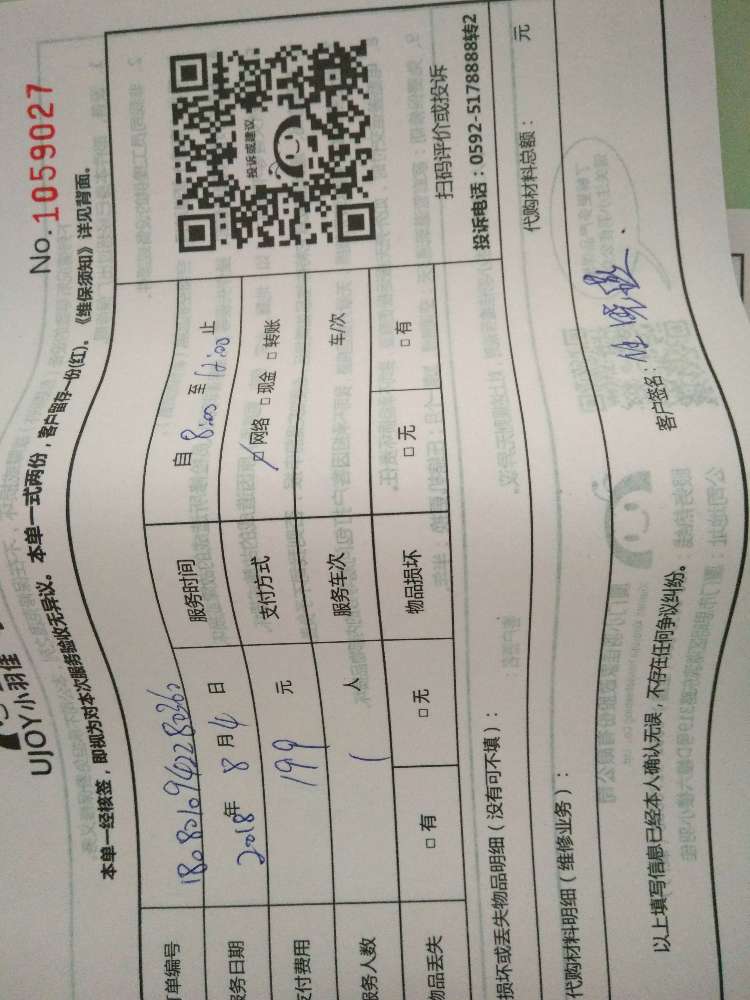 UJOY小羽佳
No. 1059027
本单一经核签，即视为对本次服务验收无异议。本单一式两份，客户留存一份(红)。《维保须知》详见背面。
单编号 180801094228036 服务时间 自 8:00 至 12:00 止
务日期 2018年 8月4日 支付方式 □网络 □现金 □转账
支付费用 199 元 服务车次 车/次
服务人数 1 人 物品损坏 □无 □有
物品丢失 □有 □无
投诉或建议
扫码评价或投诉
投诉电话：0592-5178888转2
损坏或丢失物品明细（没有可不填）：
代购材料明细（维修业务）：
代购材料总额： 元
以上填写信息已经本人确认无误，不存在任何争议纠纷。
客户签名：